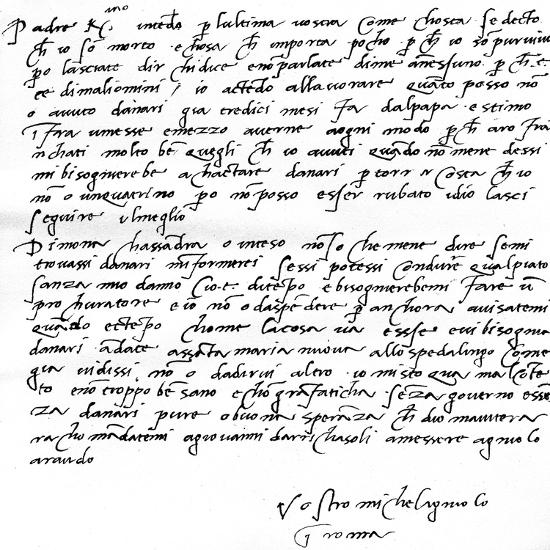 Padre K(mo intēdo p lultima vostra come chosta se decto
ch̄ io sō morto e chosa ch̄ importa pocho p ch̄ io sō pur vivo
po lasciate dir chi dice e nō parlate di me a nessuno p ch̄ e
ce di mali omini io actēdo allavorare quāto posso nō
o avuto danari gia tredici mesi fa dal papa e stimo
ī fra umese e mezzo averne a ogni modo p ch̄ aro frā
nchati molto bē quegli ch̄ io avuti quādo nō mene dessi
mi bisognierebe achactare danari p torna costa ch̄ io
nō o un quatrino po nō posso esser rubato idio lasci
seguire il meglio
Di mona chassādra o inteso nō so che mene dire se mi
trovassi danari minformerei sessi potessi condurē qua il piato
sanza mio dāno cioe di tēpo e bisognierebemi fare ū
prochuratore e io nō o da spēdere p anchora avisatemi
quādo e ctēpo chome la cosa va e sse e vi bisognia
danari ādate assāta maria nuova allo spedalingo come
gia vi dissi nō o da dirvi altro io mi sto qua mal cōte
to e nō troppo bē sano e chō grā faticha sēza governo e sse
za danari pure o buona sperāza ch̄ dio maiutera
rachomādatemi a giovanni da richasoli a messere agniolo
araudo
Vostro michelagniolo
ī roma